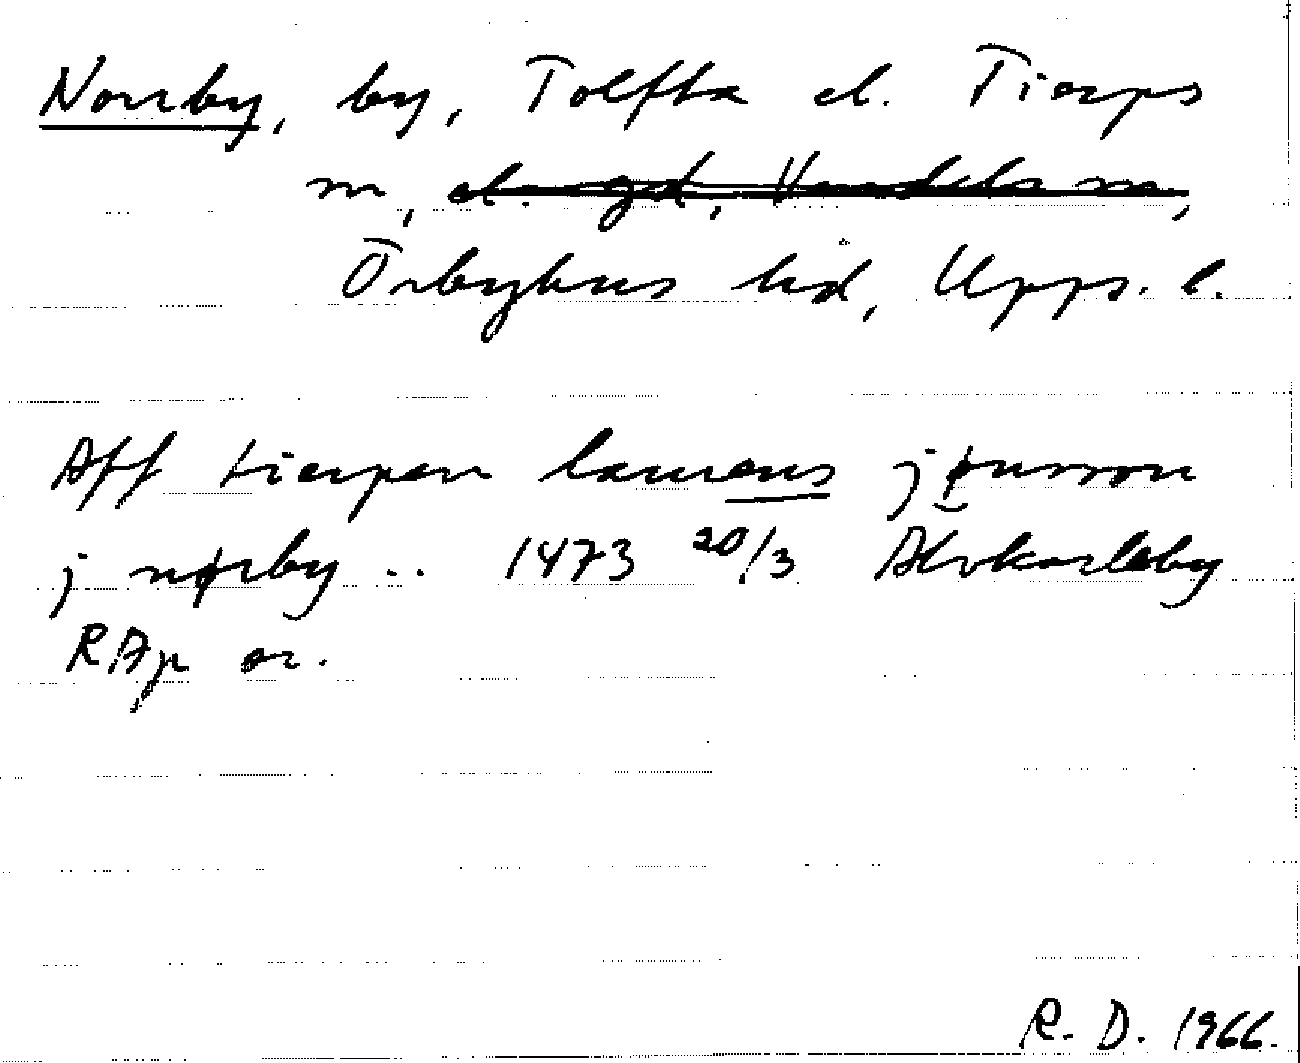 Norrby, by, Tolfta el. Tierps
sn, el. gd, Vendels sn,
Örbyhus hd, Upps. l.
Aff tierpen laurens jønsson
j nørby .. 1473 20/3 Älvkarleby
RAp or.
R. D. 1966.